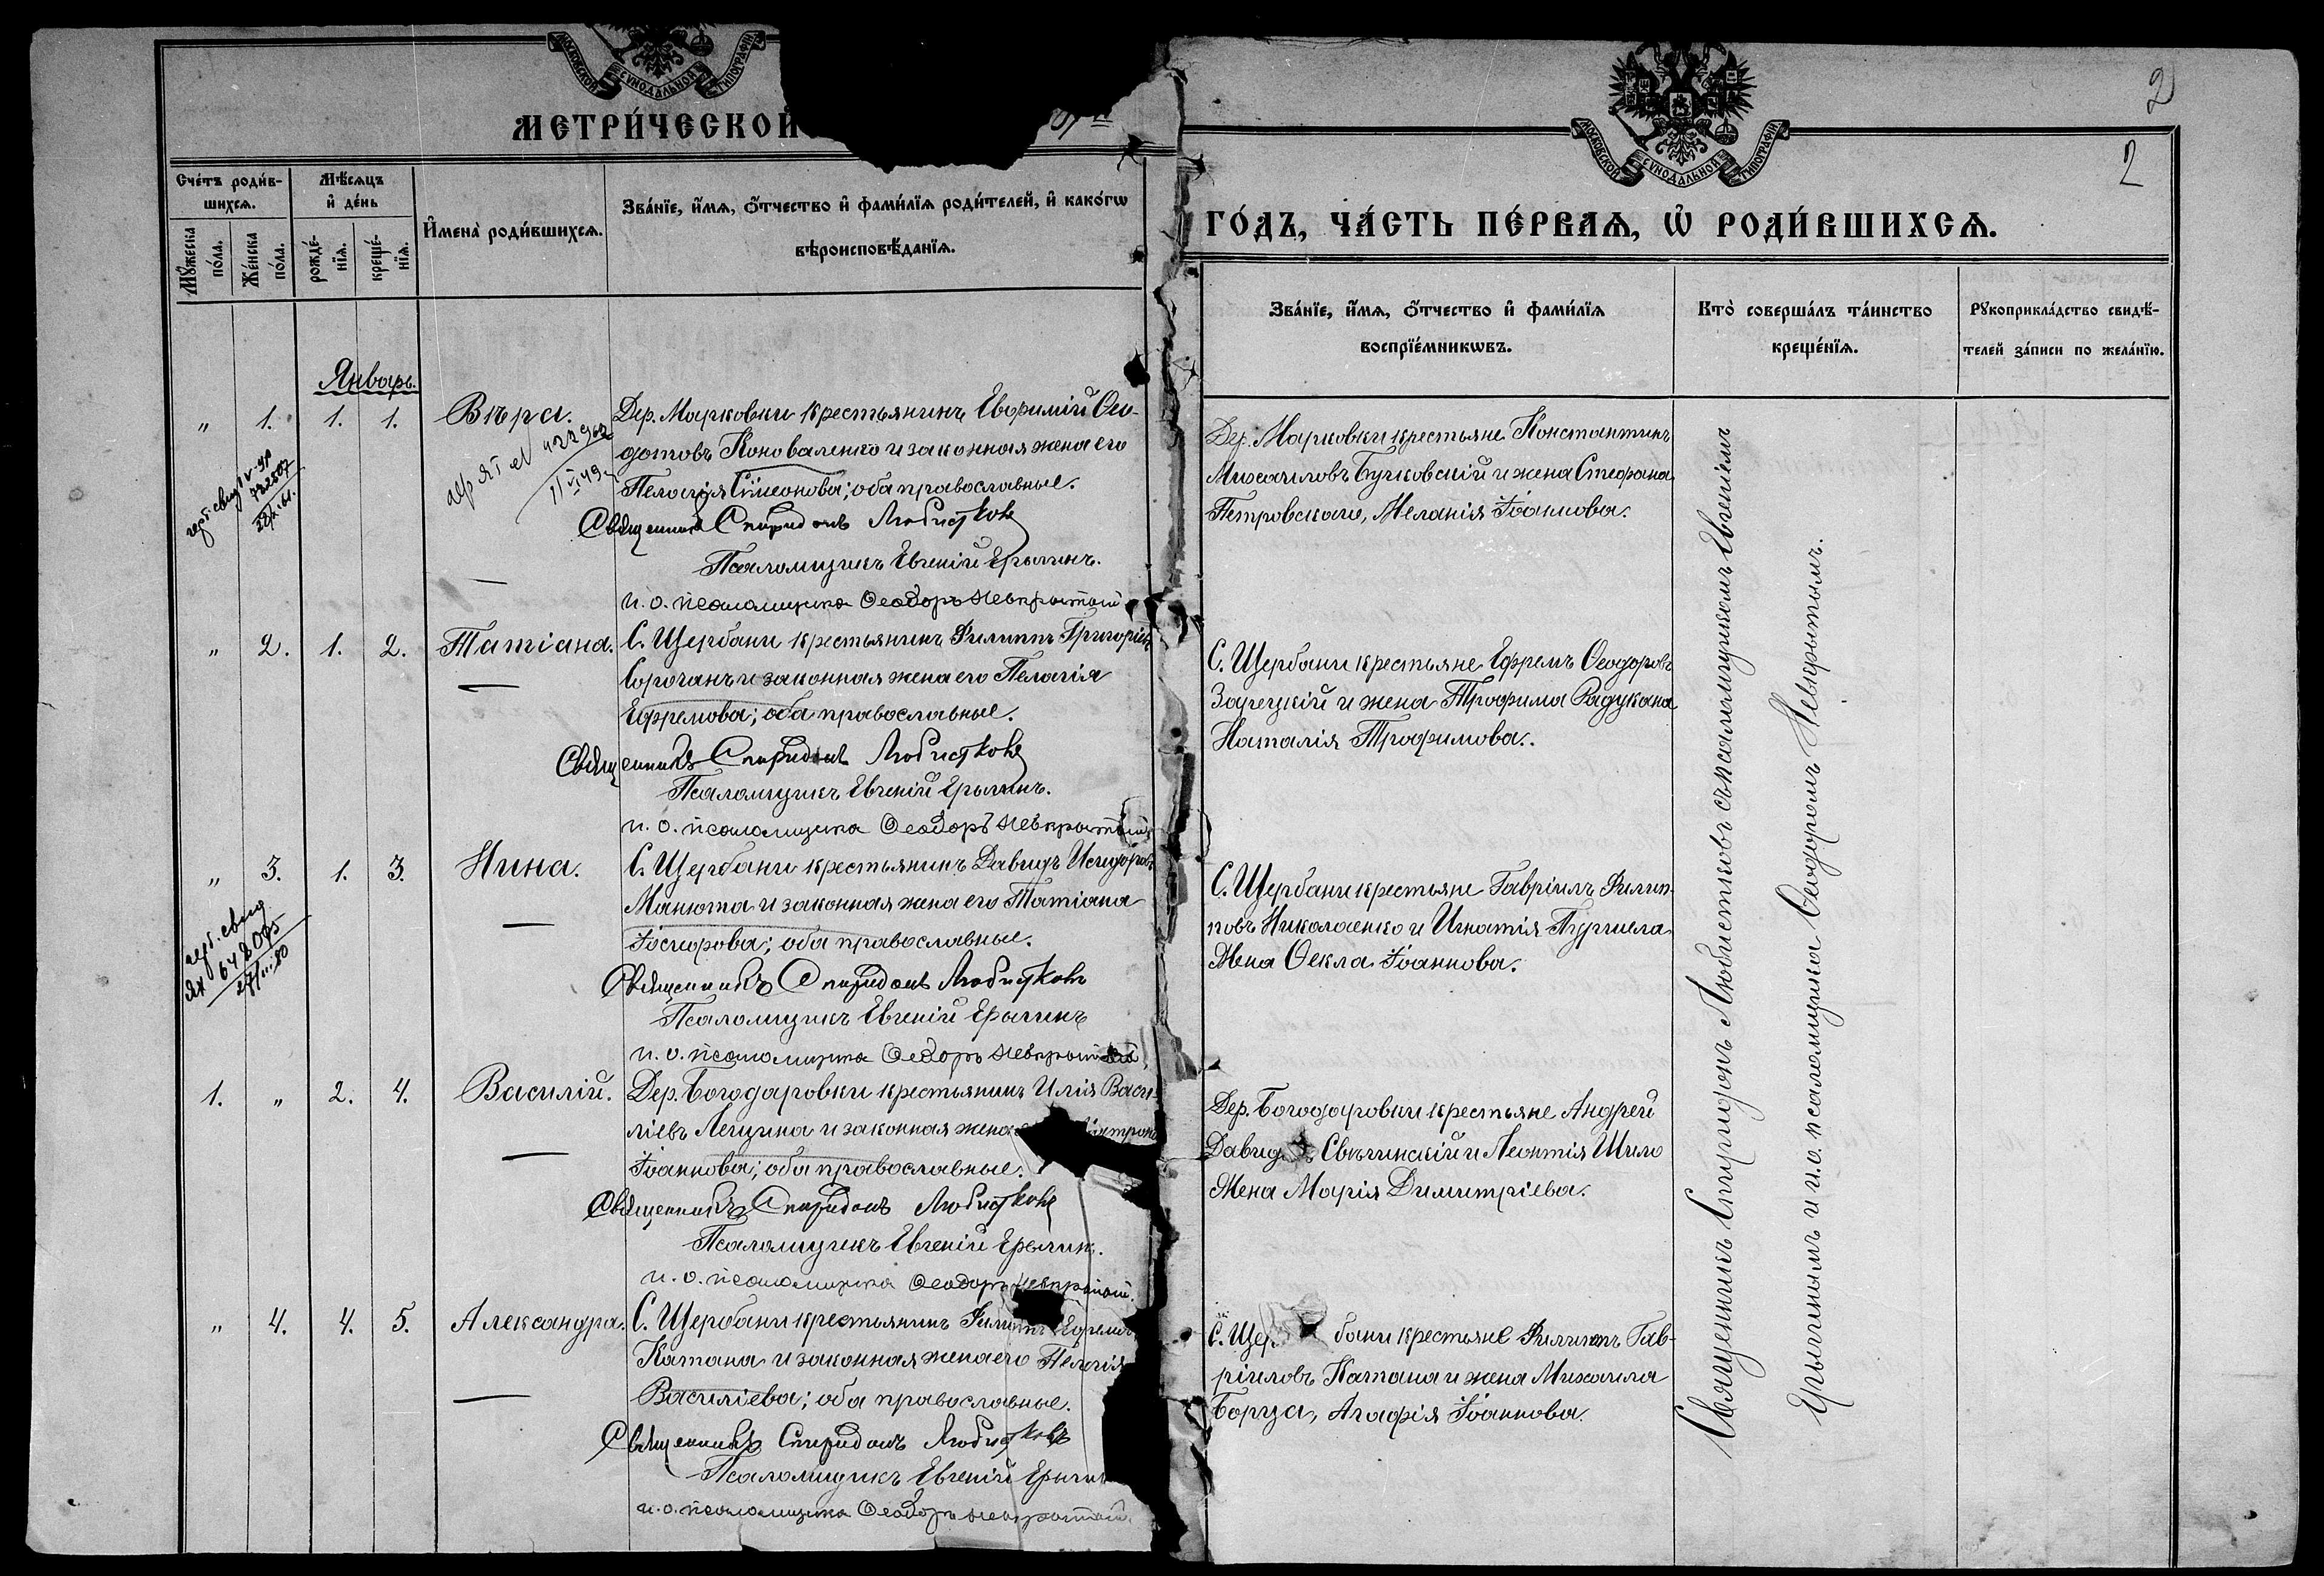 МОСКОВСКОЙ СѴНОДАЛЬНОЙ ТИПОГРАФІИ
МЕТРИ́ЧЕСКОЙ
Сче́тъ роди́в-
шихсѧ.
Мꙋ́жеска
по́ла.
Же́нска
по́ла.
Мѣ́сѧцъ
и҆ де́нь
рожде́-
нїѧ.
креще́-
нїѧ.
И҆мена̀ роди́вшихсѧ.
Зва́нїе, и҆́мѧ, ѻ҆́тчество и҆ фами́лїѧ роди́телей, и҆ како́гѡ
вѣроисповѣ́данїѧ.
Январь.
„ 1. 1. 1. Вѣра.
Дер. Марковки крестьянинъ Евѳимій Ѳео-
дотовъ Коноваленко и законная жена его
Пелагія Сѵмеонова; оба православные.
Священникъ Спиридонъ Любистковъ
Псаломщикъ Евгеній Ерыгинъ.
и. о. псаломщика Ѳеодоръ Невкрытый
„ 2. 1. 2. Татіана.
С. Щербани крестьянинъ Филиппъ Григоріевъ
Сорочанъ и законная жена его Пелагія
Ефремова; оба православные.
Священникъ Спиридонъ Любистковъ
Псаломщикъ Евгеній Ерыгинъ.
и. о. псаломщика Ѳеодоръ Невкрытый
„ 3. 1. 3. Нина.
герб. свид
С. Щербани крестьянинъ Давидъ Исидоровъ
Манюта и законная жена его Татіана
оба православные.
Священникъ Спиридонъ Любистковъ
Псаломщикъ Евгеній Ерыгинъ
и. о. псаломщика Ѳеодоръ Невкрытый
1. „ 2. 4. Василій.
Дер. Богодаровки крестьянинъ Илія Васи-
ліевъ Лещина и законная жена
Іоаннова; оба православные.
Священникъ Спиридонъ Любистковъ
Псаломщикъ Евгеній Ерыгинъ.
и. о. псаломщика Ѳеодоръ Невкрытый.
„ 4. 4. 5. Александра.
С. Щербани крестьянинъ Филиппъ Ефремовъ
Катана и законная жена его Пелагія
Василіева; оба православные.
Священникъ Спиридонъ Любистковъ
Псаломщикъ Евгеній Ерыгинъ
и. о. псаломщика Ѳеодоръ Невкрытый.
2
2
МОСКОВСКОЙ СѴНОДАЛЬНОЙ ТИПОГРАФІИ
ГО́ДЪ, ЧА́СТЬ ПЕ́РВАѦ, Ѡ҆ РОДИ́ВШИХСѦ.
Зва́нїе, и҆́мѧ, ѻ҆́тчество и҆ фами́лїѧ
воспрїе́мникѡвъ.
Кто̀ соверша́лъ та́инство
креще́нїѧ.
Рꙋкоприкла́дство свидѣ́-
телей за́писи по жела́нїю.
Дер. Марковки крестьяне Константинъ
Михаиловъ Бучковскій и жена Стефана
Петровскаго, Меланія Іоаннова.
С. Щербани крестьяне Ефремъ Ѳеодоровъ
Зарецкій и жена Трофима Радукана
Наталія Трофимова.
С. Щербани крестьяне Гавріилъ Филип-
повъ Николаенко и Игнатія
жена Ѳекла Іоаннова.
Дер. Богодаровки крестьяне Андрей
Давидовъ Свѣчинскій и Леонтія Шило
жена Марія Димитріева.
С. Щербани крестьяне Филиппъ Гав-
ріиловъ Катана и жена Михаила
Борща, Агафія Іоаннова.
Священникъ Спиридонъ Любистковъ съ псаломщикомъ Евгеніемъ
Ерыгинымъ и и. о. псаломщика Ѳеодоромъ Невкрытымъ.